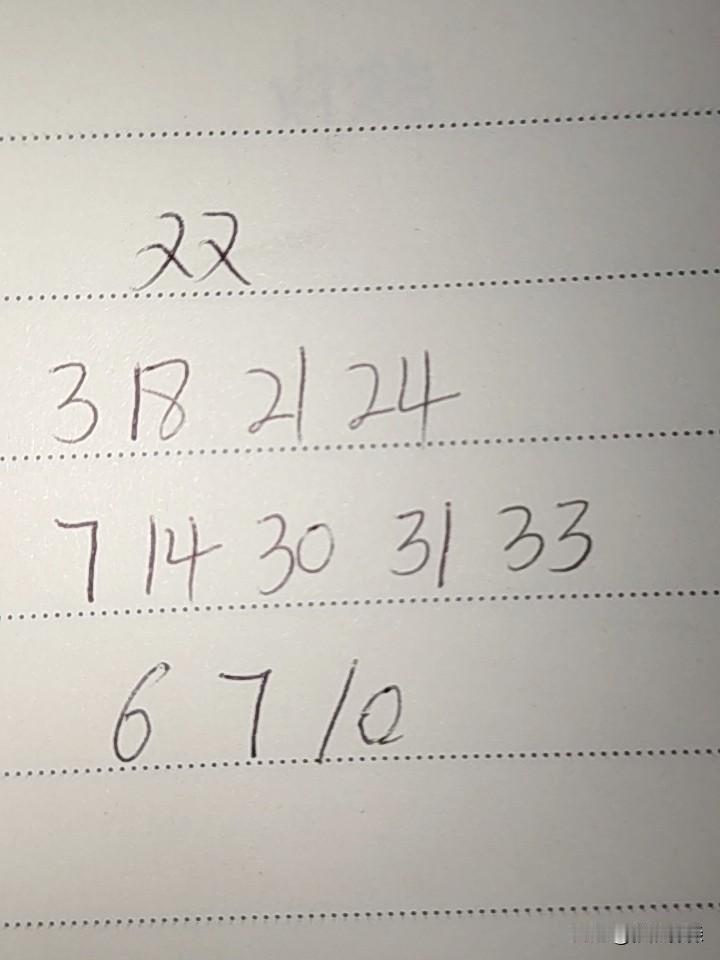 22
3 18 21 24
7 14 30 31 33
6 7 10